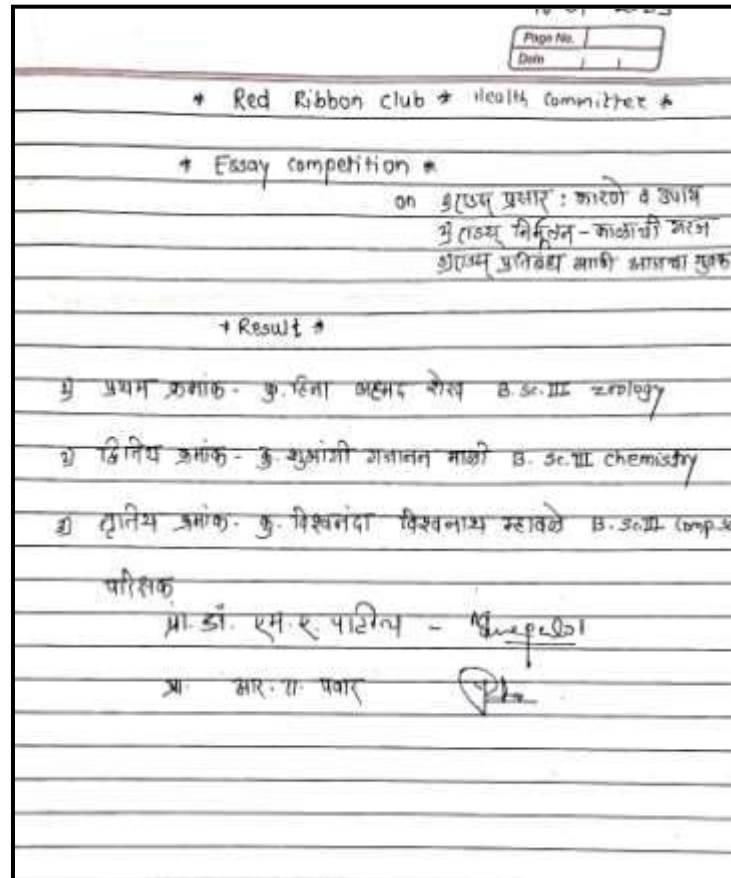 Page No.
Date
* Red Ribbon club * Health Committee *
* Essay competition *
on १) एड्स प्रसार : कारणे व उपाय
२) एड्स निर्मूलन - काळाची गरज
३) एड्स प्रतिबंध आणि आजचा युवक
* Result *
१) प्रथम क्रमांक - कु. हिना अहमद शेख B.Sc.III zoology
२) द्वितिय क्रमांक - कु. शुभांगी गजानन माळी B.Sc.III chemistry
३) तृतिय क्रमांक - कु. विश्वनंदा विश्वनाथ म्हावळे B.Sc.III Comp.Sc
परिक्षक
प्रा. डॉ. एम. ए. पाटील -
प्रा. आर. ए. पवार